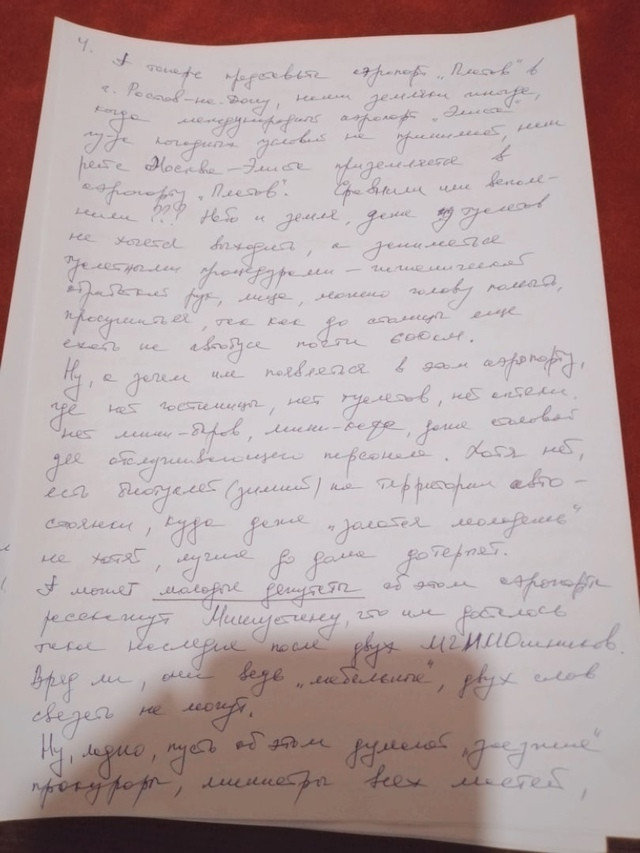 4.
А теперь представьте аэропорт „Платов" в
г. Ростов-на-Дону, наши земляки иногда,
когда международный аэропорт „Элиста"
из-за погодных условий не принимает, наш
рейс Москва – Элиста приземляется в
аэропорту „Платов". Сравнили или вспом-
нили!?? Небо и земля, даже из туалетов
не хочется выходить, а заниматься
туалетными процедурами – гигиенической
обработкой рук, лица, можно голову помыть,
просушиться, так как до столицы еще
ехать на автобусе почти 600км.
Ну, а зачем им появляться в этом аэропорту,
где нет гостиницы, нет туалетов, нет аптеки.
нет мини-баров, мини-кафе, даже столовой
для обслуживающего персонала. Хотя нет,
есть биотуалет (зимний) на территории авто-
стоянки, куда даже „золотая молодежь"
не хотят, лучше до дома дотерпят.
А может молодые депутаты об этом аэропорте
расскажут Мишустину, что им досталось
такое наследие после двух МГИМОшников.
Вряд ли, они ведь „мебельные", двух слов
связать не могут.
Ну, ладно, пусть об этом думают „заезжие"
прокуроры, министры всех мастей,